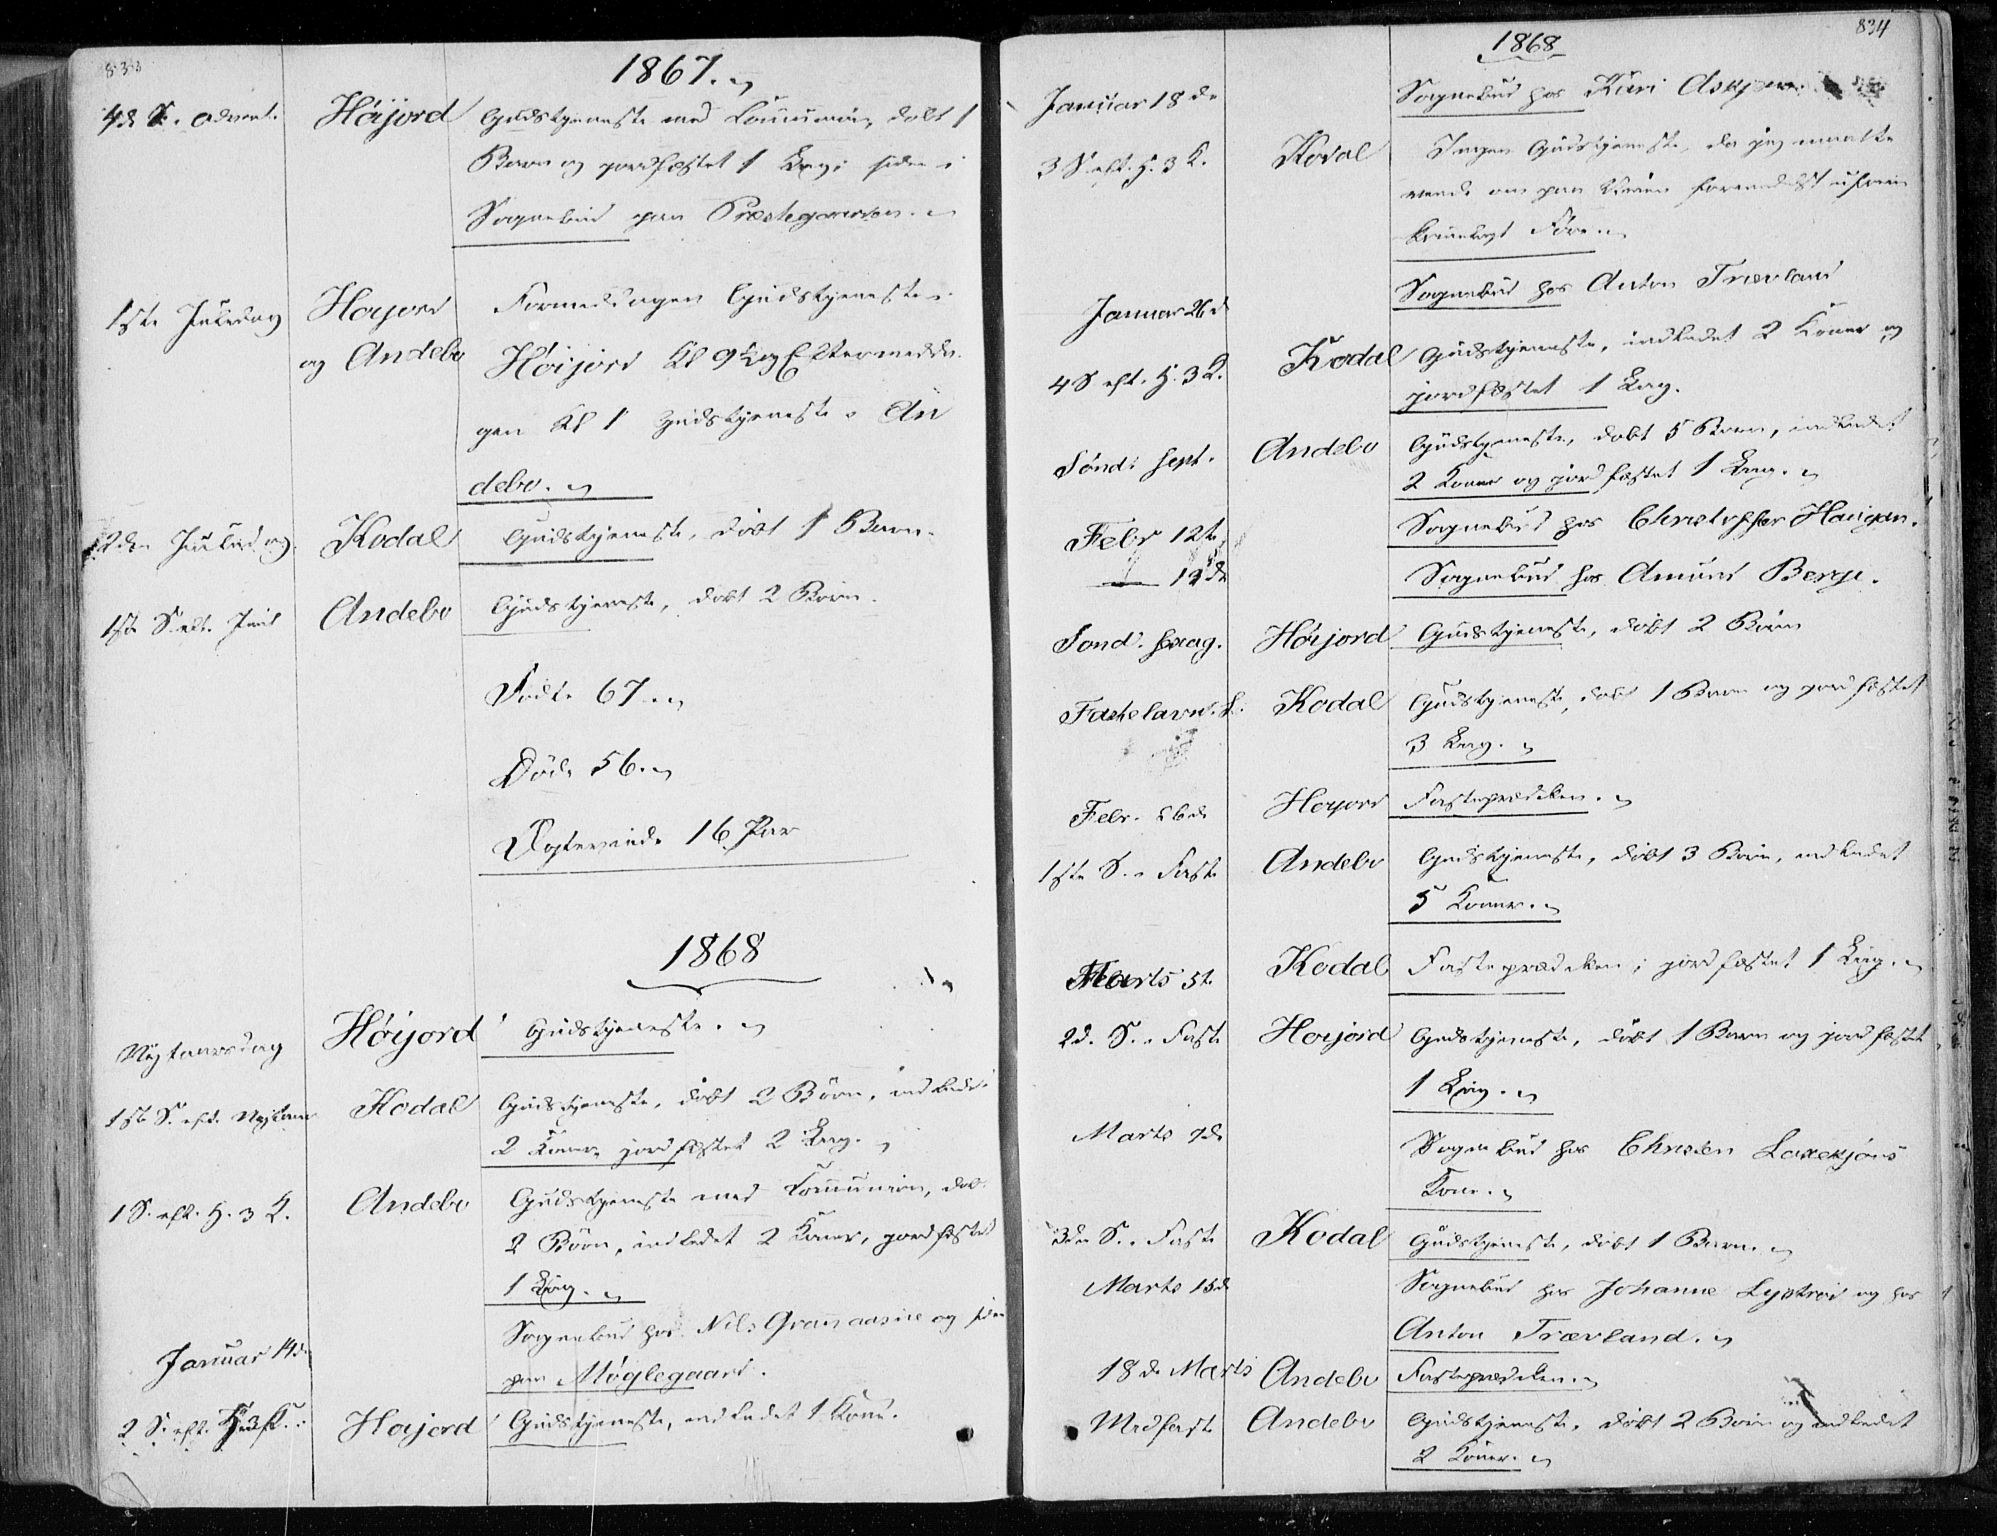 833
1867.
4de S. i Advent. Höijord Gudstjeneste med Communion, döbt 1
Barn og jordfæstet 1 Liig; siden i
Sognebud paa Præstegaarden.
1ste Juledag Höijord Formiddagen Gudstjeneste i
og Andebo Höijord Kl 9 og Eftermidda-
gen Kl 1 Gudstjeneste i An
debo.
2den Juledag Kodal Gudstjeneste, döbt 1 Barn.
1ste S. eft. Juul Andebo Gudstjeneste, döbt 2 Börn.
Födte 67.
Döde 56.
Ægteviede 16 Par
1868
Nytaarsdag Höijord Gudstjeneste.
1ste S. eft. Nytaar Kodal Gudstjeneste, döbt 2 Börn, indledet
2 Koner jordfæstet 2 Liig.
1 S. eft. H. 3 K. Andebo Gudstjeneste med Communion, döbt
2 Börn, indledet 2 Koner, jordfæstet
1 Liig.
Januar 14de Sognebud hos Nils Granaasne og siden
paa Möglegaard.
2 S. eft. H. 3 K. Höijord Gudstjeneste, indledet 1 Kone.
834
1868
Januar 18de Sognebud hos Kari Askjem.
3 S. eft. H. 3 K. Kodal Ingen Gudstjeneste, da jeg maatte
vende om paa Veien formedelst ufrem
kommeligt Före.
Januar 26de Sognebud hos Anton Trævland
4 S eft. H. 3 K. Kodal Gudstjeneste, indledet 2 Koner og
jordfæstet 1 Liig.
Sönd. Sept. Andebo Gudstjeneste, döbt 5 Börn, indledet
2 Koner og jordfæstet 1 Liig.
Febr 12te Sognebud hos Christoffer Haugan.
Sognebud hos Amund Berge.
Sönd. Sexag. Höijord Gudstjeneste, döbt 2 Börn
Fastelavns S. Kodal Gudstjeneste, döbt 1 Barn og jordfæstet
3 Liig.
Febr. 26de Höijord Fasteprædiken.
1ste S. i Faste Andebo Gudstjeneste, döbt 3 Börn, indledet
5 Koner.
Marts 5te Kodal Fasteprædiken; jordfæstet 1 Liig.
2de S. i Faste Höijord Gudstjeneste, döbt 1 Barn og jordfæstet
1 Liig.
Marts 9de Sognebud hos Christen Laxesjöns
Kone.
3die S. i Faste Kodal Gudstjeneste, döbt 1 Barn.
Marts 15de Sognebud hos Johanne Lyströd og hos
Anton Trævland.
18de Marts Andebo Fasteprædiken.
Midfaste Andebo Gudstjeneste, döbt 2 Börn og indledet
2 Koner.